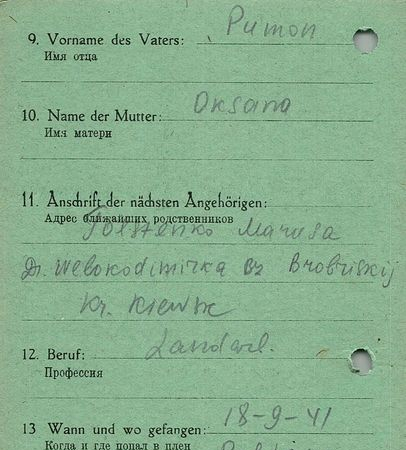 9. Vorname des Vaters: Pimon
Имя отца
10. Name der Mutter: Oksana
Имя матери
11. Anschrift der nächsten Angehörigen:
Адрес ближайших родственников
Marusa
D. Welokodimirka
Kr. Kiewsk
12. Beruf: Landarb.
Профессия
13 Wann und wo gefangen: 18-9-41
Когда и где попал в плен